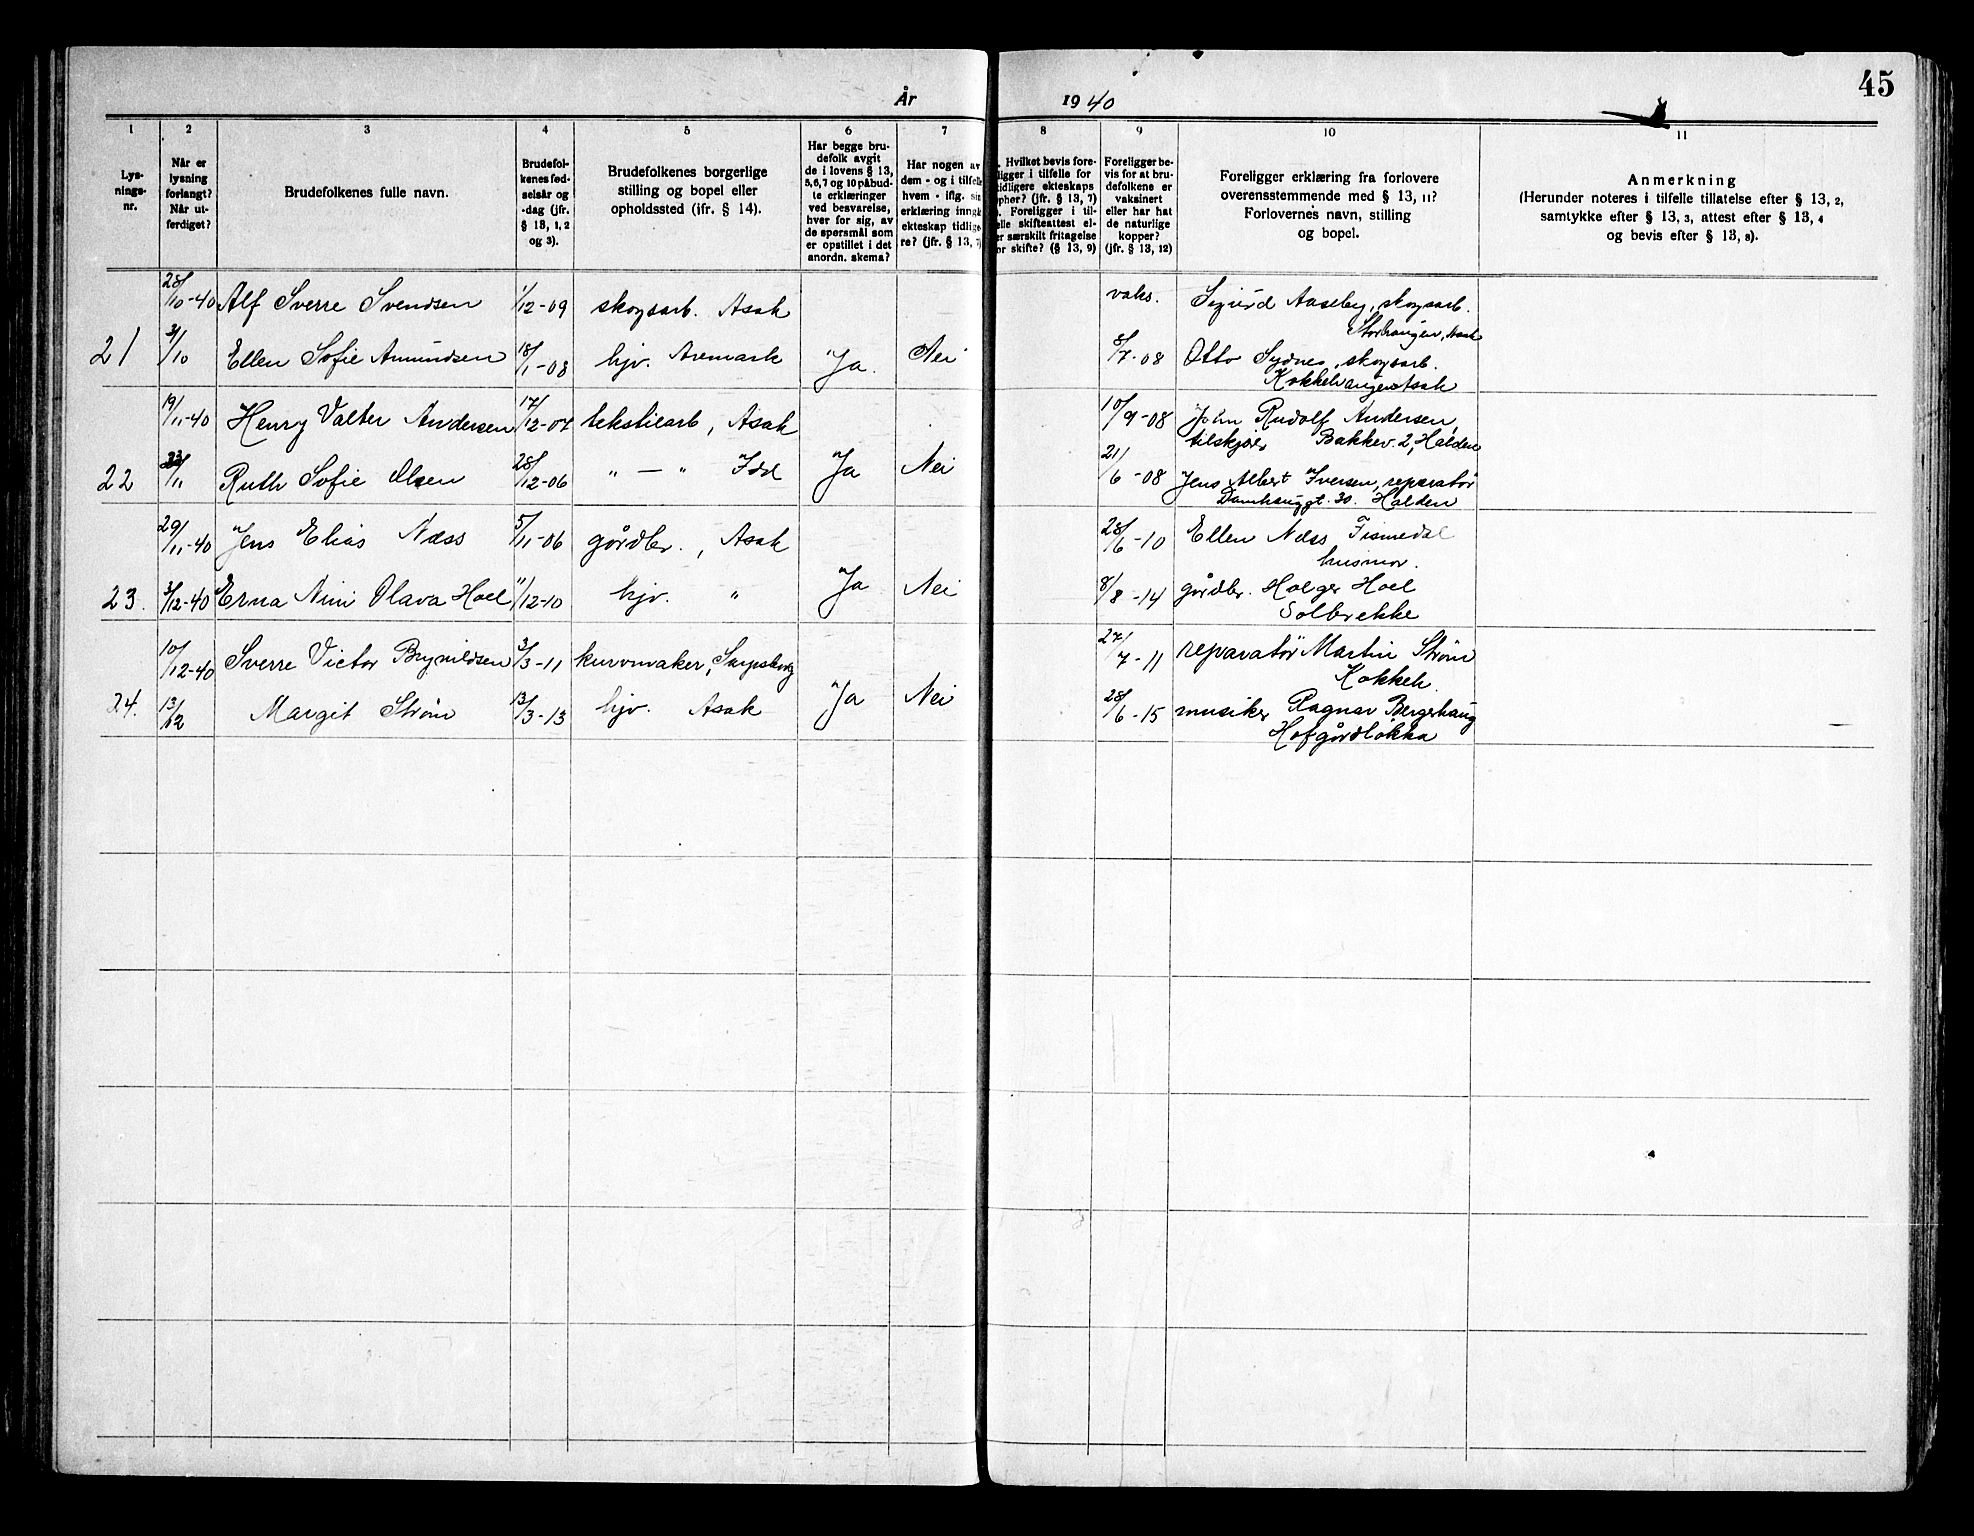 År 1940
45
1 2 3 4 5 6 7 8 9 10 11
Lys-
nings-
nr.
Når er
lysning
forlangt?
Når ut-
ferdiget?
Brudefolkenes fulle navn.
Brudefol-
kenes fød-
selsår og
-dag (jfr.
§ 13, 1, 2
og 3).
Brudefolkenes borgerlige
stilling og bopel eller
opholdssted (ifr. § 14).
Har begge bru-
defolk avgit
de i lovens § 13,
5, 6, 7 og 10 påbud-
te erklæringer
ved besvarelse,
hver for sig, av
de spørsmål som
er opstillet i det
anordn. skema?
Har nogen av
dem - og i tilfelle
hvem - iflg. sin
erklæring inngå
ekteskap tidlige
re? (jfr. § 13, 7)
. Hvilket bevis fore-
ligger i tilfelle for
tidligere ekteskaps
opher? (jfr. § 13, 7)
. Foreligger i til-
elle skifteattest el-
er særskilt fritagelse
or skifte? (§ 13, 9)
Foreligger be-
vis for at bru-
defolkene er
vaksinert
eller har hat
de naturlige
kopper?
(jfr. § 13, 12)
Foreligger erklæring fra forlovere
overensstemmende med § 13, 11?
Forlovernes navn, stilling
og bopel.
Anmerkning
(Herunder noteres i tilfelle tillatelse efter § 13, 2,
samtykke efter § 13, 3, attest efter § 13, 4
og bevis efter § 13, 8).
28/10-40 Alf Sverre Svendsen 1/12-09 skogsarb. Asak vaks. Sigurd Aaseby, skogsarb.
Storhaugen, Asak
21 31/10 Ellen Sofie Amundsen 18/1-08 hjv. Aremark Ja. Nei 8/7-08 Otto Sydnes, skogsarb.
Asak
19/11-40 Henry Valter Andersen 17/12-07 tekstilarb, Asak 10/9-08 John Rudolf Andersen,
tilskjær Bakkev. 2, Halden
22 23/11 Ruth Sofie Olsen 28/12-06 " — " Idd Ja Nei 21/6-08 Jens Albert Iversen, reparatør
Damhauggt. 30. Halden
29/11-40 Jens Elias Næss 5/11-06 gårdbr., Asak 28/6-10 Ellen Næss Fismedal
husmor.
23. 3/12-40 Erna Nini Olava Hoel 11/12-10 hjv. " Ja Nei 8/8-14 gårdbr. Holger Hoel
Solbrekke
10/12-40 Sverre Victor Brynildsen 3/3-11 kurvmaker, Sarpsborg 27/7-11 reparatør Martin Strøm
Kokkeh.
24. 13/12 Margit Strøm 13/3-13 hjv. Asak Ja Nei 28/6-15 musiker Ragnar Bergerhaug
Hofgårdløkka